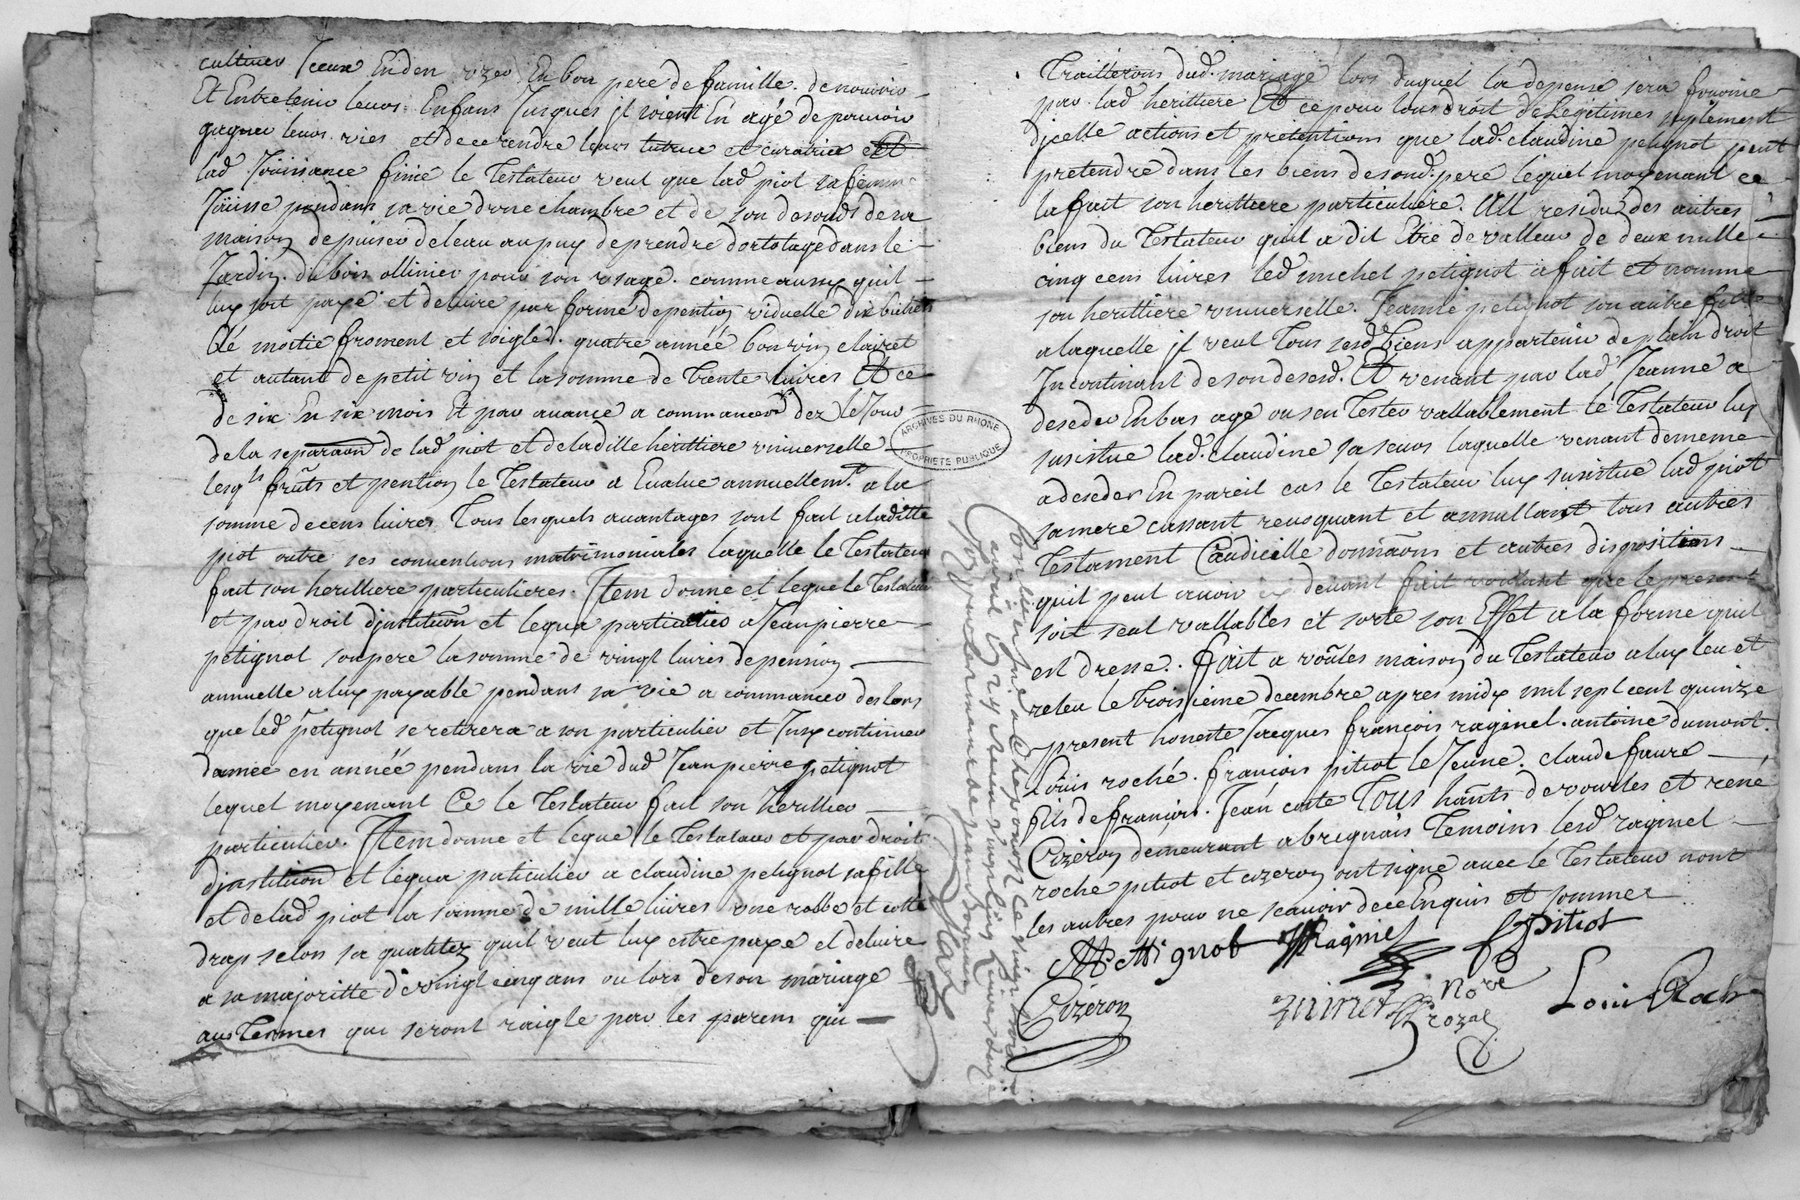 cultiver Iceux En den vzer En bon pere de famille. de nourrir
Et Entretenir leurs Enfans Jusques jl soient En age de pouvoir
gagner leurs vies et de ce rendre leurs tutrice et curatrice et
lad Jouissance finie le Testateur veut que lad piot sa femme
Jouisse pendans sa vie dvne chambre et de son desoubs de sa
maison de puiser de leau au puy de prendre dortolage dans le
Jardin. du bois ollinier pour son vsage. comme aussy quil
luy soit payé et deliuré par forme de pention viduelle dix bichets
blé moitie froment et soigle. quatre année bon vin clairet
et autant de petit vin et la somme de Trente liures Et ce
de six En six mois Et par auance a commancer dez le Jour
de la separaon de lad piot et de la ditte herittiere vniuerselle
lesqls fruts et pention le Testateur a Eualue annuellemt. a la
somme de cens liures Tous lesquels auantages sont fait a laditte
piot outre ses conuentions matrimoniales laquelle le Testateur
fait son herittiere particulieres. Item donne et legue le Testateur
et par droit djnstitution et legua particulier a Jean pierre
petignot son pere la somme de vingt liures de pension
annuelle a luy payable pendans sa vie a commancer deslors
que led petignot se retirera a son particulier et Jusy continuer
dannee en année pendans la vie dud Jean pierre petignot
lequel moyenant Ce le Testateur fait son herittier
particulier. Item donne et legue le Testateur et par droit
djnstitution et legua paticulier a claudine petignot sa fille
et de lad piot la somme de mille liures vne robbe et cotte
drap selon sa qualitez quil veut luy estre payé et deliuré
a sa majoritte de vingt cinq ans ou lors de son mariage
aux Termes qui seront raigle par les parens qui
Traitterons dud. mariage lors duquel la depense sera fournie
par lad herittiere Et ce pour tous droit de Legitimes suplement
djcelle actions et pretentions que lad. claudine petignot peut
pretendre dans les biens de sond. pere lequel moyenant ce
la fait son herittiere particuliere. Au residu des autres
biens du Testateur quil a dit Etre de valleur de deux mille
cinq cens liures led michel petignot a fait et nomme
son herittiere vniuerselle. Jeanne petignot son autre fille
a laquelle jl veut Tous sesd biens appartenir de plain droit
Incontinant de son deseds. Et venant par lad Jeanne a
deseder En bas age ou sen Tester vallablement le Testateur luy
susistue lad. claudine sa seur laquelle venant de meme
a deseder En pareil cas le Testateur luy susistue lad piot
sa mere cassant reuoquant et annullant tous autres
Testament Caudicille donnaons et autres dispositions
quil peut auoir cy deuant fait voulant que le present
soit seul vallables et sorte son Effet a la forme quil
est dresse. fait a voûrles maison du Testateur a luy leu et
releu le troisieme decembre apres midy mil sept cent quinze
present honeste Jacques françois raginel. antoine dumont.
Louis roché. francois pitiot le Jeune. claude faure
fils de francois. Jean coste Tous hants de vourles et rené
Cizeron demeurant a brignais Temoins lesd raginel
roche pitiot et cizeron ont signe auec le Testateur nont
les autres pour ne scauoir de ce Enquis et sommes
M petignot JfRaginel fpitiot
Cizeron Louis Roche
Nore
rozal
ARCHIVES DU RHONE
PROPRIETE PUBLIQUE